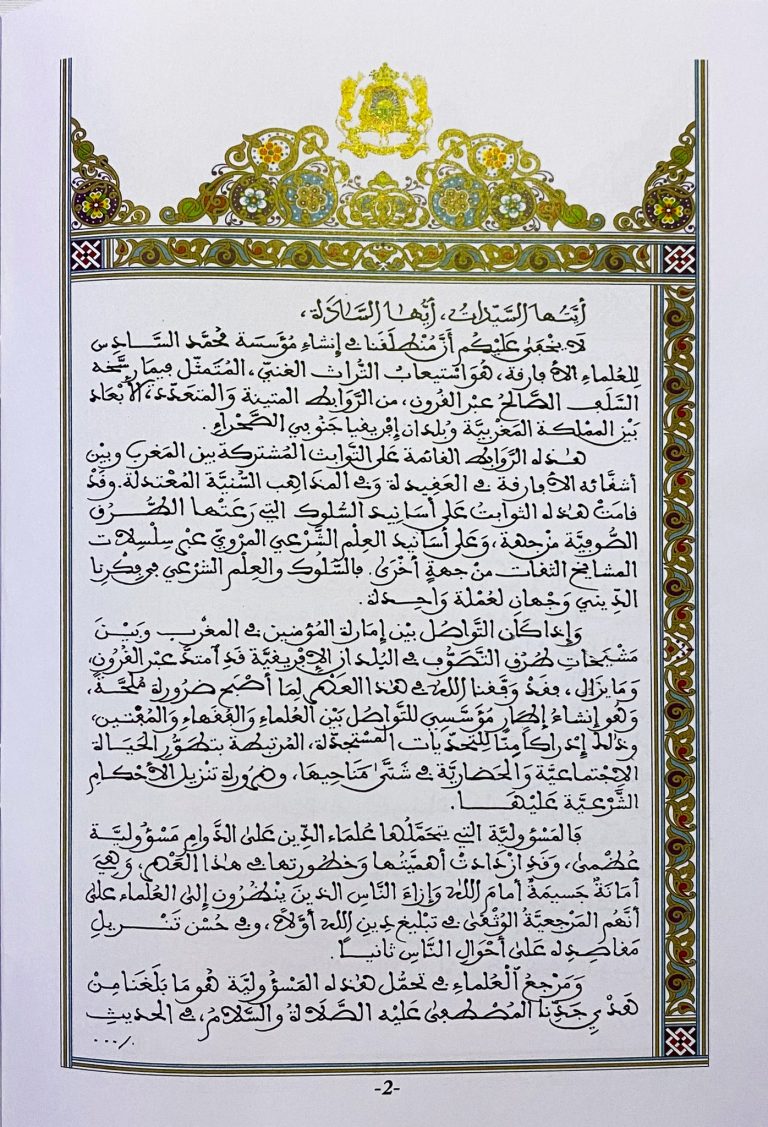 أيتها السيدات، أيها السادة،
لا يخفى عليكم أن منطلقنا في إنشاء مؤسسة محمد السادس
للعلماء الأفارقة، هو استيعاب التراث الغني، المتمثل فيما رسخه
السلف الصالح عبر القرون، من الروابط المتينة والمتعددة الأبعاد
بين المملكة المغربية وبلدان إفريقيا جنوبي الصحراء.
هذه الروابط القائمة على الثوابت المشتركة بين المغرب وبين
أشقائه الأفارقة في العقيدة وفي المذاهب السنية المعتدلة. وقد
قامت هذه الثوابت على أسانيد السلوك التي رعتها الطرق
الصوفية من جهة، وعلى أسانيد العلم الشرعي المروي عبر سلسلات
المشايخ الثقات من جهة أخرى. فالسلوك والعلم الشرعي في فكرنا
الديني وجهان لعملة واحدة.
وإذا كان التواصل بين إمارة المؤمنين في المغرب وبين
مشيخات طرق التصوف في البلدان الإفريقية قد امتد عبر القرون،
وما يزال، فقد وفقنا الله في هذا العهد لما أصبح ضرورة ملحة،
وهو إنشاء إطار مؤسسي للتواصل بين العلماء والفقهاء والمفتين،
وذلك إدراكا منا للتحديات المستجدة، المرتبطة بتطور الحياة
الاجتماعية والحضارية في شتى مناحيها، وضرورة تنزيل الأحكام
الشرعية عليها.
فالمسؤولية التي يتحملها علماء الدين على الدوام مسؤولية
عظمى، وقد ازدادت أهميتها وخطورتها في هذا العهد، وهي
أمانة جسيمة أمام الله وإزاء الناس الذين ينظرون إلى العلماء على
أنهم المرجعية الوثقى في تبليغ دين الله أولا، وفي حسن تنزيل
مقاصده على أحوال الناس ثانيا.
ومرجع العلماء في تحمل هذه المسؤولية هو ما بلغنا من
هدي جدنا المصطفى عليه الصلاة والسلام، في الحديث
.../
-2-